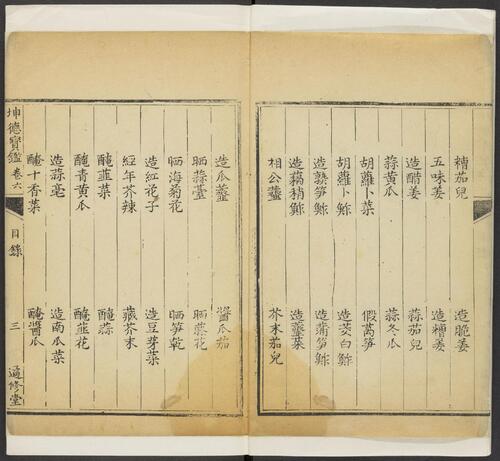 糟茄兒 造脆姜
五味姜 造糟姜
造醋姜 蒜茄兒
蒜黃瓜 蒜冬瓜
胡蘿卜菜 假萵笋
胡蘿卜鮓 造茭白鮓
造熟笋鮓 造蒲笋鮓
造藕稍鮓 造虀菜
相公虀 芥末茄兒
造瓜虀 醬瓜茄
晒蒜薹 晒藤花
晒海菊花 晒笋乾
造紅花子 造豆芽菜
經年芥辣 藏芥末
醃韮菜 醃蒜
醃青黃瓜 醃韮花
造蒜毫 造南瓜菜
醃十香菜 醃醬瓜
坤德寶鑑 卷六 目錄 三 適修堂